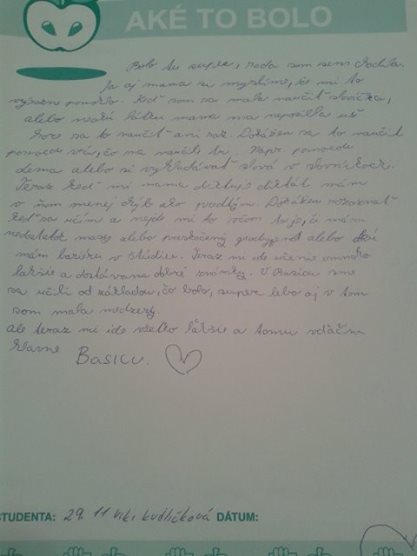 AKÉ TO BOLO
Bolo tu super, rada som sem chodila.
Ja aj mama si myslíme, že mi to
výrazne pomohlo. Keď som sa mala naučiť slovíčka,
alebo nejakú látku mama ma naposilla už
sa to naučiť ani raz. Dokážem sa to naučiť
pomocou vín, čo ma naučili tu. Napr. pomocou
dema alebo si vyhľadávať slová v slovníkoch.
Teraz keď mi mama diktuje diktát mám
v ňom menej chýb ako predtým. Dokážem rozoznať
keď sa učím a nejde mi to učenie to je, že mám
nedostatok masy alebo preskočený gradient alebo že
mám bariéru v štúdiu. Teraz mi ide učenie omnoho
ľahšie a dostávam dobré známky. V Basicu sme
sa učili od základov, čo bolo super lebo aj v tom
som mala medzery
ale teraz mi ide všetko ľahšie a tomu vďačím
hlavne BASICU.
ŠTUDENTA: 29 11 Viki Kudličková DÁTUM: